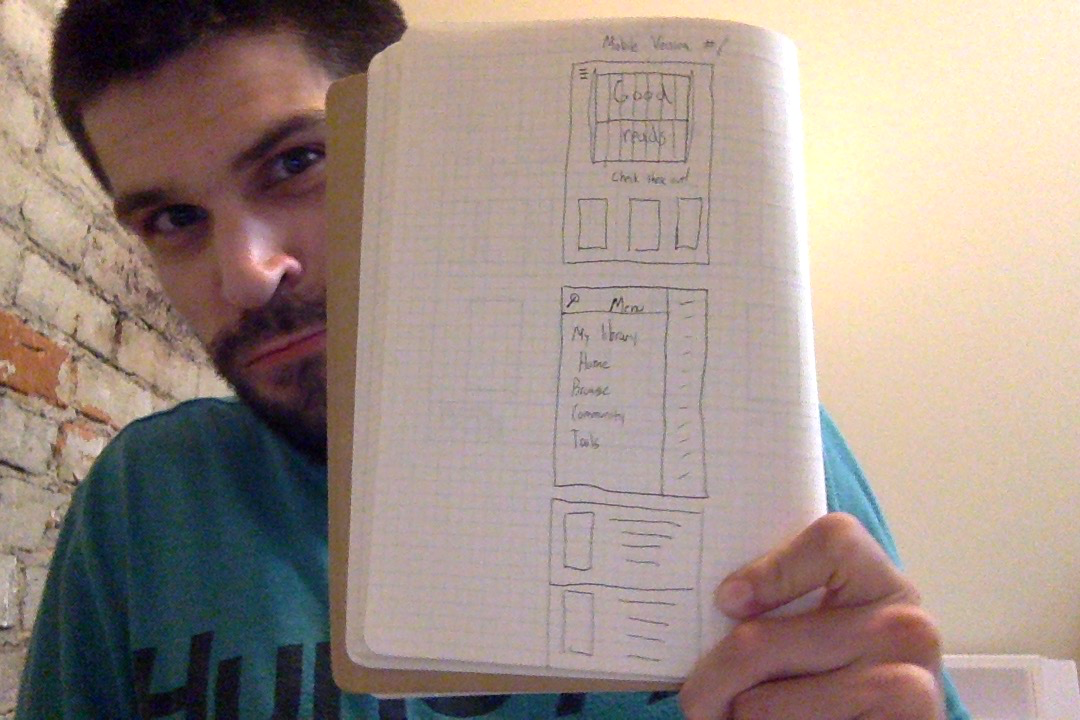 Mobile Version #1
Good
reads
Check these out!
Menu
My library
Home
Browse
Community
Tools